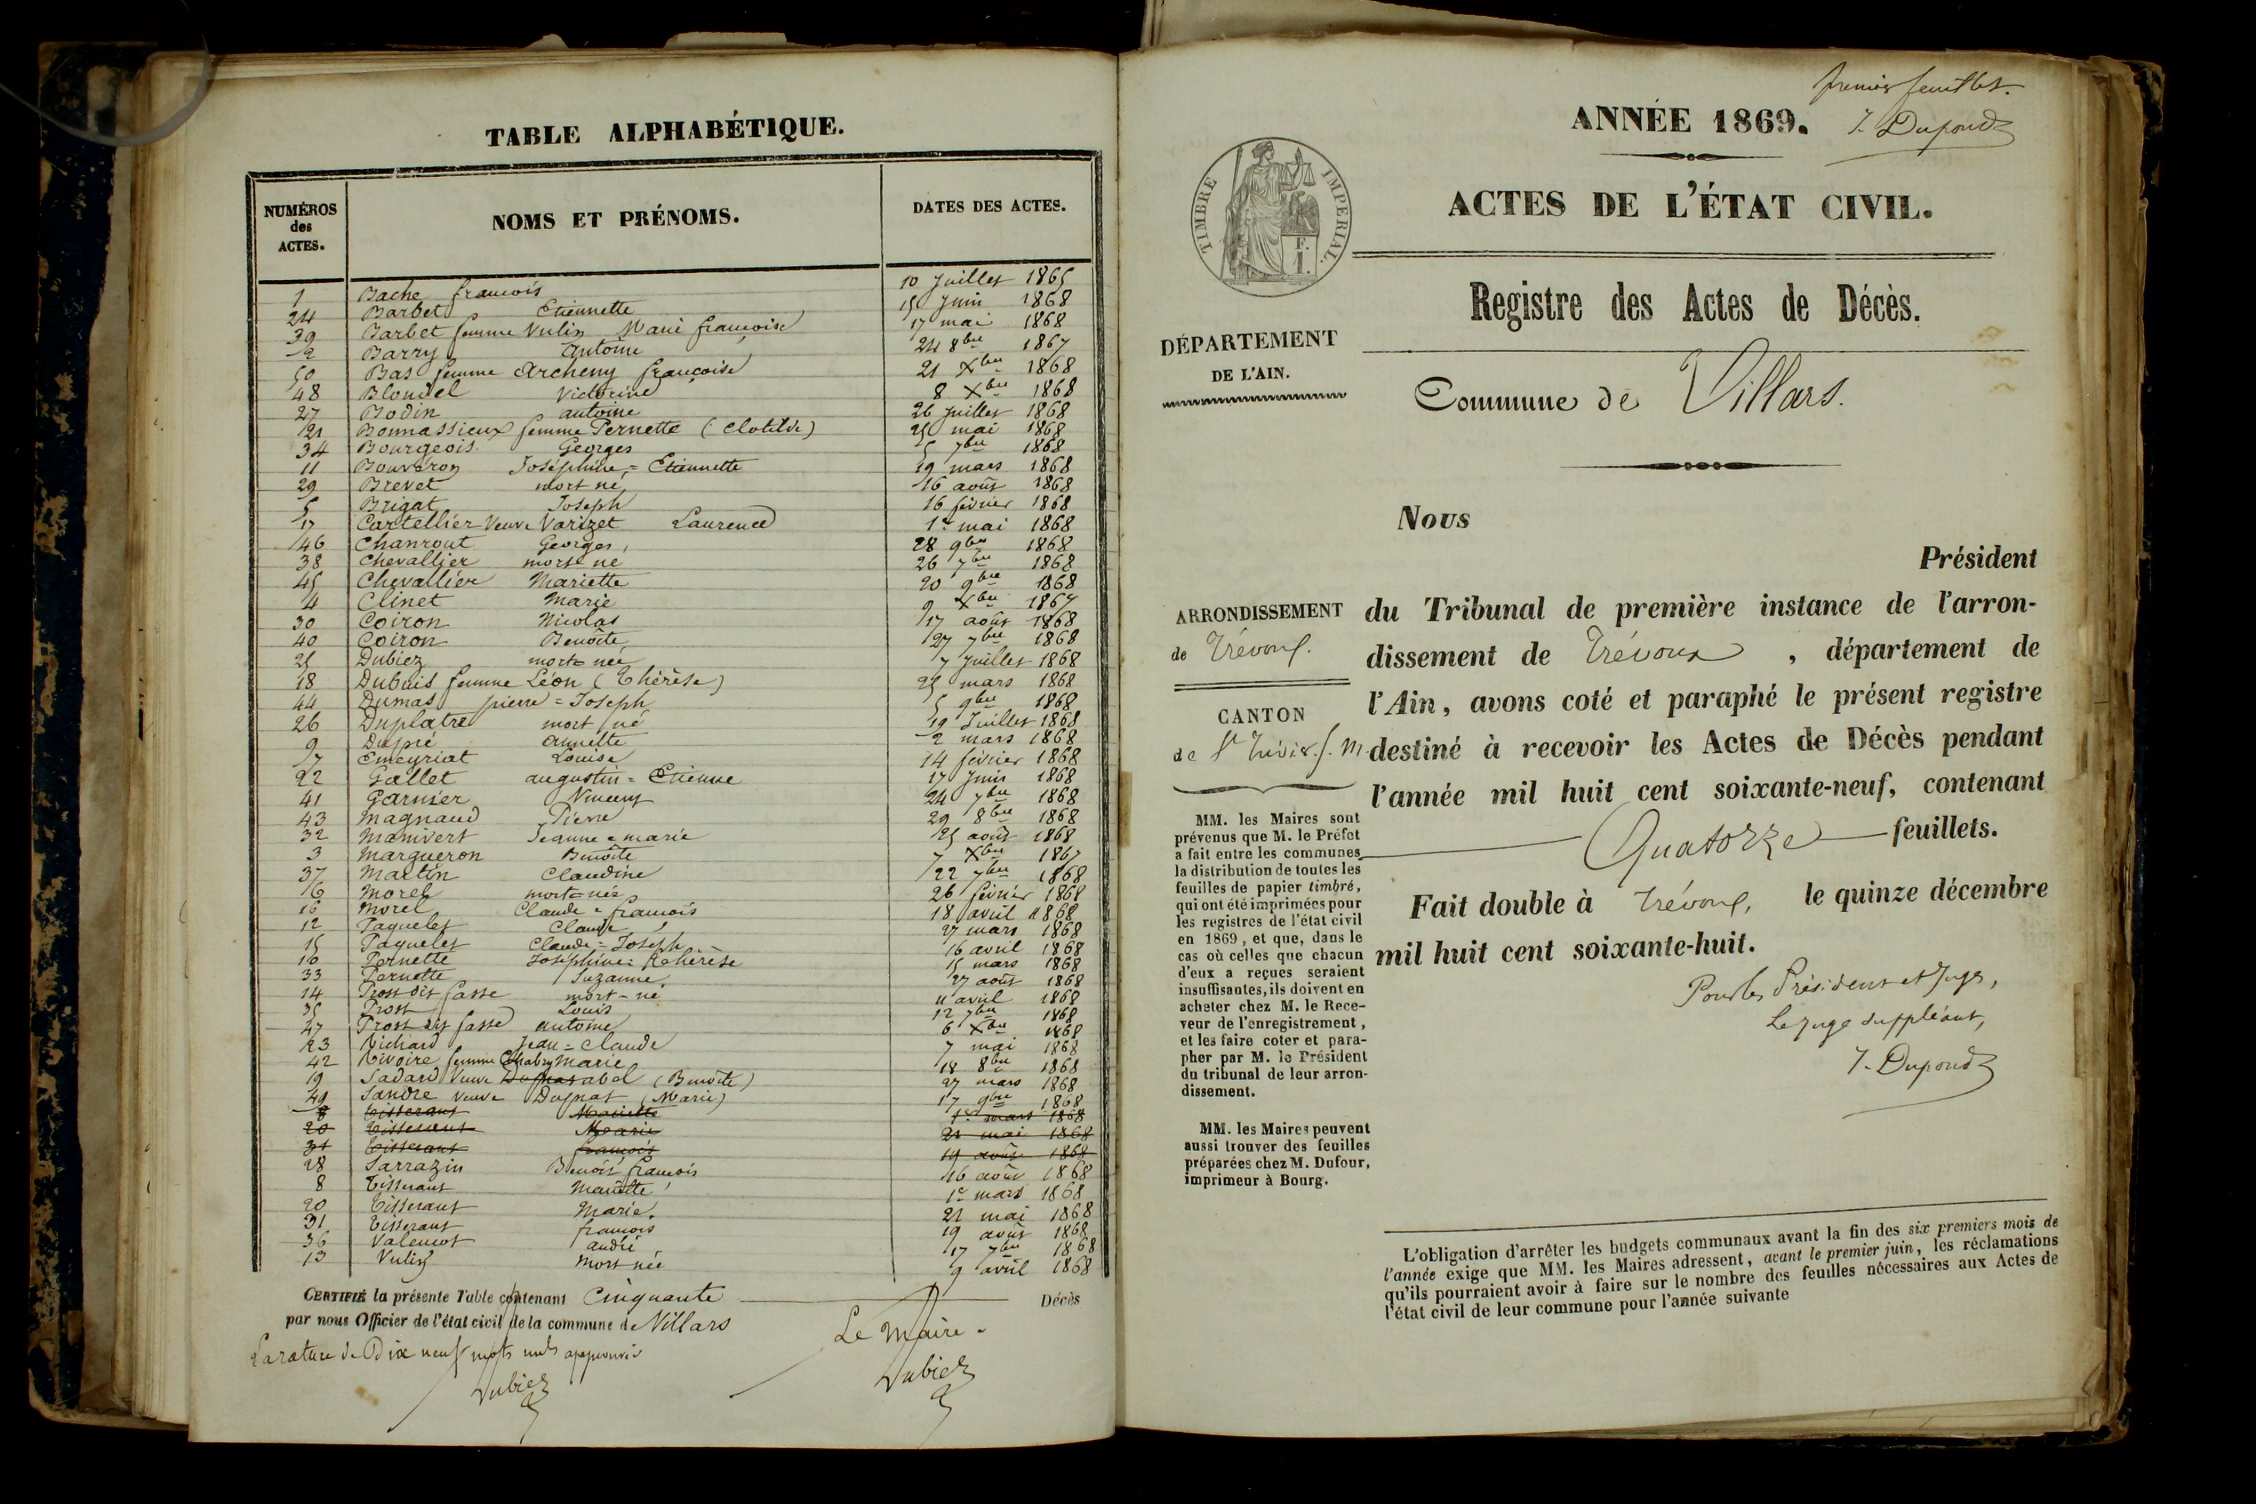 TABLE ALPHABÉTIQUE.
NUMÉROS des ACTES. NOMS ET PRÉNOMS. DATES DES ACTES.
1 Bache françois 10 Juillet 1865
24 Barbet Etiennette 15 Juin 1868
39 Barbet femme Vulin Marie françoise 17 mai 1868
2 Barry Antoine 24 8bre 1867
50 Bas femme Archeny françoise 21 Xbre 1868
48 Blondel Victorine 8 Xbre 1868
27 Bodin antoine 26 Juillet 1868
21 Bonnassieux femme Pernette (Clotilde) 25 mai 1868
34 Bourgeois Georges 5 7bre 1868
11 Bouveron Joséphine = Etiennette 19 mars 1868
29 Brevet mort né 16 août 1868
5 Brigat Joseph 16 février 1868
17 Cartellier Veuve Varizet Laurence 1er mai 1868
46 Chanrout Georges 28 9bre 1868
38 Chevallier mort né 26 7bre 1868
45 Chevallier Mariette 20 9bre 1868
4 Clinet Marie 9 Xbre 1867
30 Coiron Nicolas 17 août 1868
40 Coiron Benoîte 27 7bre 1868
25 Dubiez mort-née 7 Juillet 1868
18 Dubuis femme Léon (Thérèse) 25 mars 1868
44 Dumas pierre = Joseph 5 9bre 1868
26 Duplatre mort né 19 Juillet 1868
9 Dupré annette 2 mars 1868
7 Emeyriat Louise 14 février 1868
22 Gallet augustin = Etienne 17 Juin 1868
41 Garnier Vincent 24 7bre 1868
43 Magnaud Pierre 29 8bre 1868
32 Manivert Jeanne = marie 25 août 1868
3 Margueron Benoîte 7 Xbre 1867
37 Martin Claudine 22 7bre 1868
6 Morel mort-née 26 février 1868
16 Morel Claude = françois 18 avril 1868
12 Paquelet Claude 27 mars 1868
15 Paquelet Claude = Joseph 16 avril 1868
10 Pernette Joséphine = Thérèse 15 mars 1868
33 Pernette Suzanne 27 août 1868
14 Prost dit fasse mort-né 11 avril 1868
35 Prost Louis 12 7bre 1868
47 Prost dit fasse antoine 6 Xbre 1868
23 Richard Jean = Claude 7 mai 1868
42 Rivoire femme Chabry Marie 18 8bre 1868
19 Sadard Veuve abel (Benoîte) 27 mars 1868
49 Sandre veuve Dugnat (Marie) 17 9bre 1868
8 Tisserant Mariette 1er mars 1868
20 Tisserant Marie 21 mai 1868
31 Tisserant françois 19 août 1868
28 Sarrazin Benoit françois 16 août 1868
8 Tisserant Mariette 1er mars 1868
20 Tisserant Marie 21 mai 1868
31 Tisserant françois 19 août 1868
36 Valencot andré 17 7bre 1868
13 Vulin Mort née 9 avril 1868
CERTIFIÉ la présente Table contenant Cinquante Décès
par nous Officier de l'état civil de la commune de Villars
La rature de Dix neuf mots nuls approuvée
Le Maire.
Dubiez
Dubiez
premier feuillet.
J. Dupond
ANNÉE 1869.
TIMBRE IMPERIAL
F.
1.
ACTES DE L'ÉTAT CIVIL.
Registre des Actes de Décès.
DÉPARTEMENT
DE L'AIN.
Commune de Villars.
ARRONDISSEMENT
de Trévoux.
CANTON
de St Trivier s. M.
MM. les Maires sont
prévenus que M. le Préfet
a fait entre les communes
la distribution de toutes les
feuilles de papier timbré,
qui ont été imprimées pour
les registres de l'état civil
en 1869, et que, dans le
cas où celles que chacun
d'eux a reçues seraient
insuffisantes, ils doivent en
acheter chez M. le Rece-
veur de l'enregistrement,
et les faire coter et para-
pher par M. le Président
du tribunal de leur arron-
dissement.
MM. les Maires peuvent
aussi trouver des feuilles
préparées chez M. Dufour,
imprimeur à Bourg.
Nous
Président
du Tribunal de première instance de l'arron-
dissement de Trévoux, département de
l'Ain, avons coté et paraphé le présent registre
destiné à recevoir les Actes de Décès pendant
l'année mil huit cent soixante-neuf, contenant
Quatorze feuillets.
Fait double à Trévoux, le quinze décembre
mil huit cent soixante-huit.
Pour les Président et Juges,
Le Juge suppléant,
J. Dupond
L'obligation d'arrêter les budgets communaux avant la fin des six premiers mois de
l'année exige que MM. les Maires adressent, avant le premier juin, les réclamations
qu'ils pourraient avoir à faire sur le nombre des feuilles nécessaires aux Actes de
l'état civil de leur commune pour l'année suivante